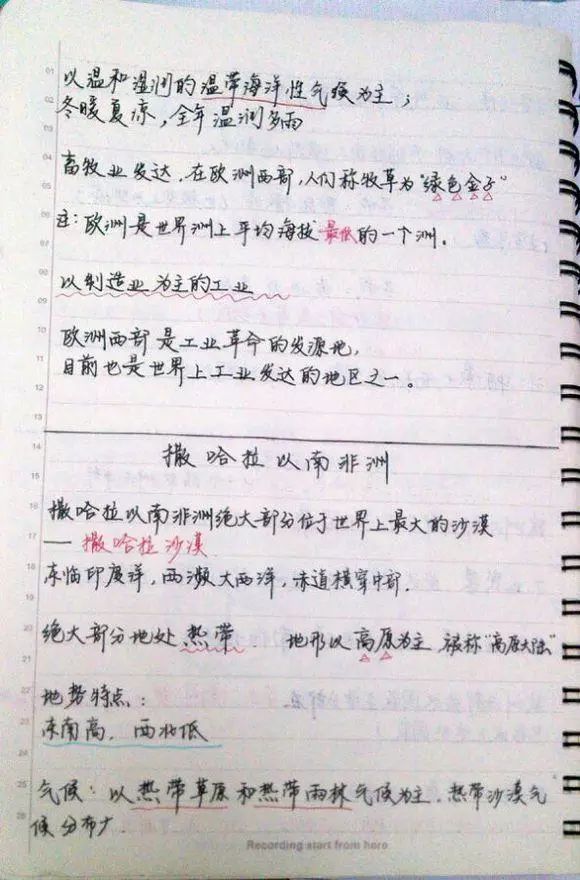 以温和湿润的温带海洋性气候为主；
冬暖夏凉，全年温润多雨
畜牧业发达，在欧洲西部，人们称牧草为"绿色金子"
注：欧洲是世界洲上平均海拔最低的一个洲。
以制造业为主的工业
欧洲西部是工业革命的发源地，
目前也是世界上工业发达的地区之一
撒哈拉以南非洲
撒哈拉以南非洲绝大部分位于世界上最大的沙漠
— 撒哈拉沙漠
东临印度洋，西濒大西洋，赤道横穿中部.
绝大部分地处热带. 地形以高原为主，被称"高原大陆"
地势特点：
东南高，西北低
气候：以热带草原和热带雨林气候为主，热带沙漠气
候分布广
Recording start from here